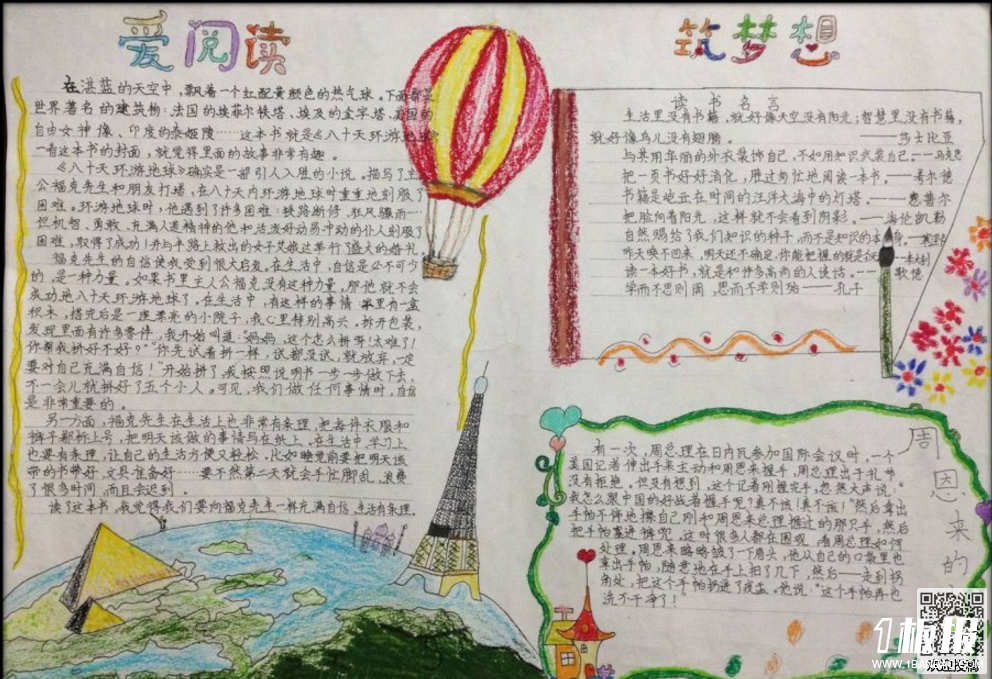 爱阅读
在湛蓝的天空中，飘着一个红配黄颜色的热气球。下面都是
世界著名的建筑物：法国的埃菲尔铁塔、埃及的金字塔、美国的
自由女神像、印度的泰姬陵……这本书就是《八十天环游地球》
一看这本书的封面，就觉得里面的故事非常有趣。
《八十天环游地球》确实是一部引人入胜的小说。描写了主
公福克先生和朋友打堵，在八十天内环游地球时重重地刻服了
困难。环游地球时，他遇到了许多困难：铁路断修，狂风骤雨……
但机智、勇敢、充满人道精神的他和活泼好动易冲动的仆人刻服了
困难，取得了成功！并与半路上救出的女子艾娥达举行了盛大的婚礼。
福克先生的自信使我受到很大启发。在生活中，自信是必不可少
的，是一种力量。如果书里主人公福克没有这种力量，那他就不会
成功绝八十天环游地球了。在生活中，有这样的事情：有一盒
积木，搭完后是一座漂亮的小院子，我心里特别高兴。拆开包装，
发现里面有许多零件，我开始叫道：“妈妈，这个怎么拼呀！太难了！
你帮我拼好不好？”“你先试着拼一样，试都没试，就放弃，一定
要对自己充满自信！”开始拼了，我按照说明书一步一步做下去，
不一会儿就拼好了五个小人。可见，我们做任何事情时，自信
是非常重要的。
另一方面，福克先生在生活上也非常有条理，把每件衣服和
裤子都标上号，把明天该做的事情写在纸上。在生活中，学习上
也要有条理，让自己的生活方便又轻松。比如睡觉前要把明天该
带的书带好，文具准备好……要不然第二天就会手忙脚乱，浪费
了很多时间，而且会迟到。
读了这本书，我觉得我们要向福克先生一样充满自信，生活有条理。
筑梦想
读书名言
生活里没有书籍，就好像天空没有阳光；智慧里没有书籍，
就好像鸟儿没有翅膀。——莎士比亚
与其用华丽的外衣装饰自己，不如用知识武装自己——马克思
把一页书好好消化，胜过匆忙地阅读一本书。——考尔德
书籍是屹立在时间的汪洋大海中的灯塔。——惠普尔
把脸向着阳光，这样就不会看到阴影。——海伦凯勒
自然赐给了我们知识的种子，而不是知识的本身。——塞
昨天唤不回来，明天还不确定，你能把握的就是今天
读一本好书，就是和许多高尚的人谈话。——歌德
学而不思则罔，思而不学则殆——孔子
周恩来的
有一次，周总理在日内瓦参加国际会议时，一个
美国记者伸出手来主动和周恩来握手，周总理出于礼节
没有拒绝。但没有想到，这个记者刚握完手，忽然大声说：“
我怎么跟中国的好战者握手呢？真不该！真不该！”然后拿出
手帕不停地擦自己刚和周恩来总理握过的那只手，然后
把手帕塞进裤兜。这时很多人都在围观，看周总理如何
处理。周恩来略略皱了一下眉头，他从自己的口袋里也
拿出手帕，随意地在手上扫了几下，然后——走到拐
角处，把这个手帕扔进了痰盂。他说：“这个手帕再也
洗不干净了！”
1板报
WWW.1BANBAO.COM